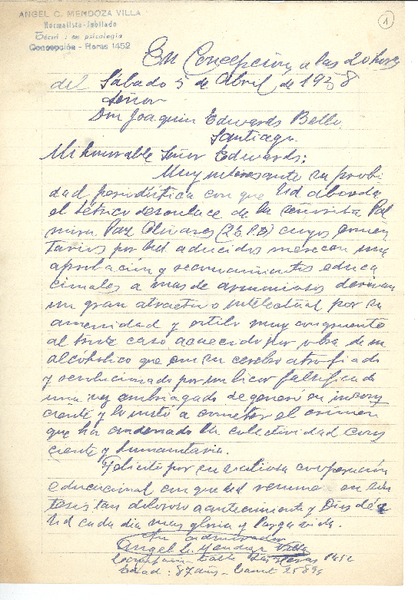 ANGEL C. MENDOZA VILLA
Normalista-Jubilado
en psicología
Concepción - Heras 1452
1
En Concepción, a las 20 horas
del Sábado 5 de Abril de 1958
Señor
Don Joaquín Edwards Bello
Santiago.
Mi honorable Señor Edwards:
Muy interesante su probi
dad periodística con que Ud aborda
el tétrico desenlace de la señorita Pal
mira Paz Olivares cuyos comen
tarios por Ud aducidos merecen una
aprobación y educa
cionales a mas de
un gran atractivo intelectual por su
amenidad y estilo muy congruente
al triste caso acaecido por obra de un
alcohólico que con su cerebro atrofiado
y revolucionado por un licor falsificado
una vez embriagado degeneró en incons
ciente y lo metió a cometer el crimen
que ha condenado la colectividad cons
ciente y humanitaria.
Felicito por su cooperación
educacional con que Ud
acontecimiento y Dios dé a
Ud cada día mas gloria y larga vida.
Su admirador
Angel C. Mendoza Villa
Concepción Calle Heras 1452
Edad: 87 años - Carnet